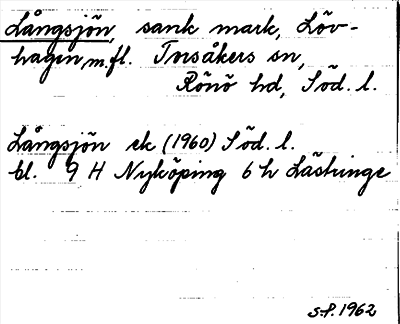 Långsjön, sank mark, Löv-
hagen, m.fl. Torsåkers sn,
Rönö hd, Söd. l.
Långsjön ek (1960) Söd. l.
bl. 9 H Nyköping 6 h Lästringe
S-P. 1962